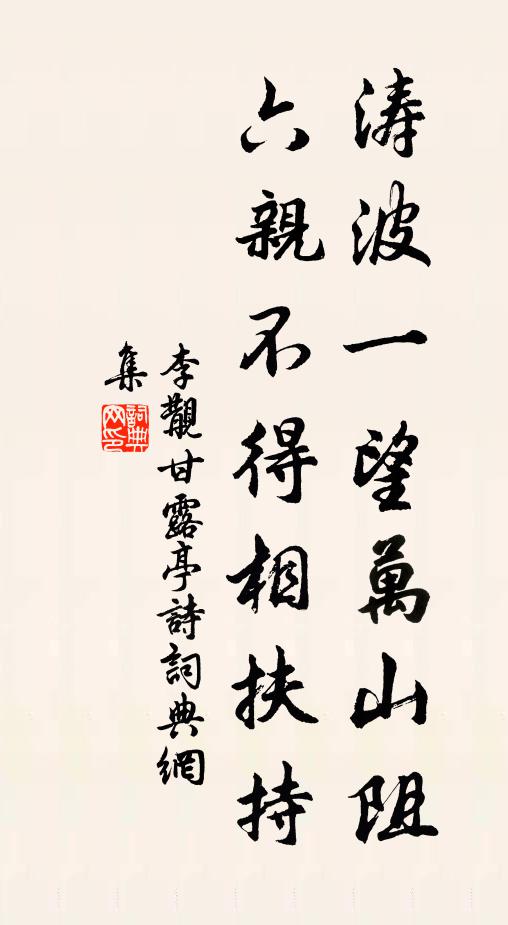 涛波一望萬山阻
六親不得相扶持
李觀甘露亭詩詞典網
集
詞典
网印